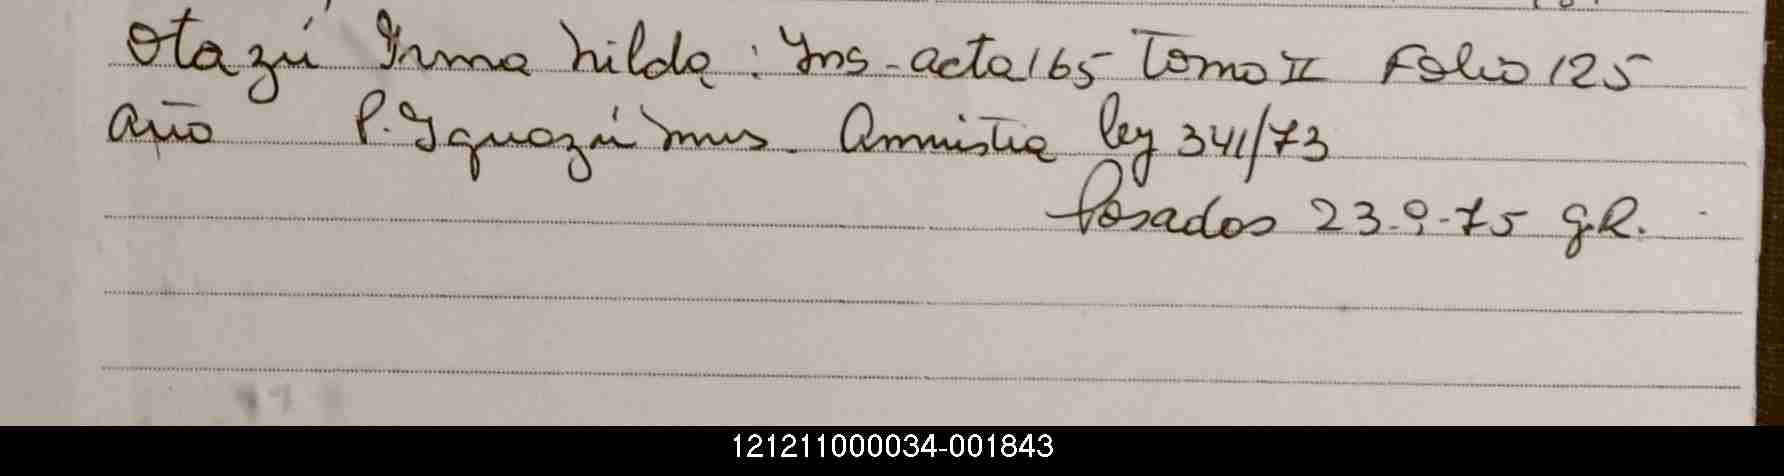 Otazú Irma hilda: Yns-acta 165 Tomo II Folio 125
año P. Iguazú mns. Amnistia ley 341/73
Posadas 23-9-75 g.R.
121211000034-001843